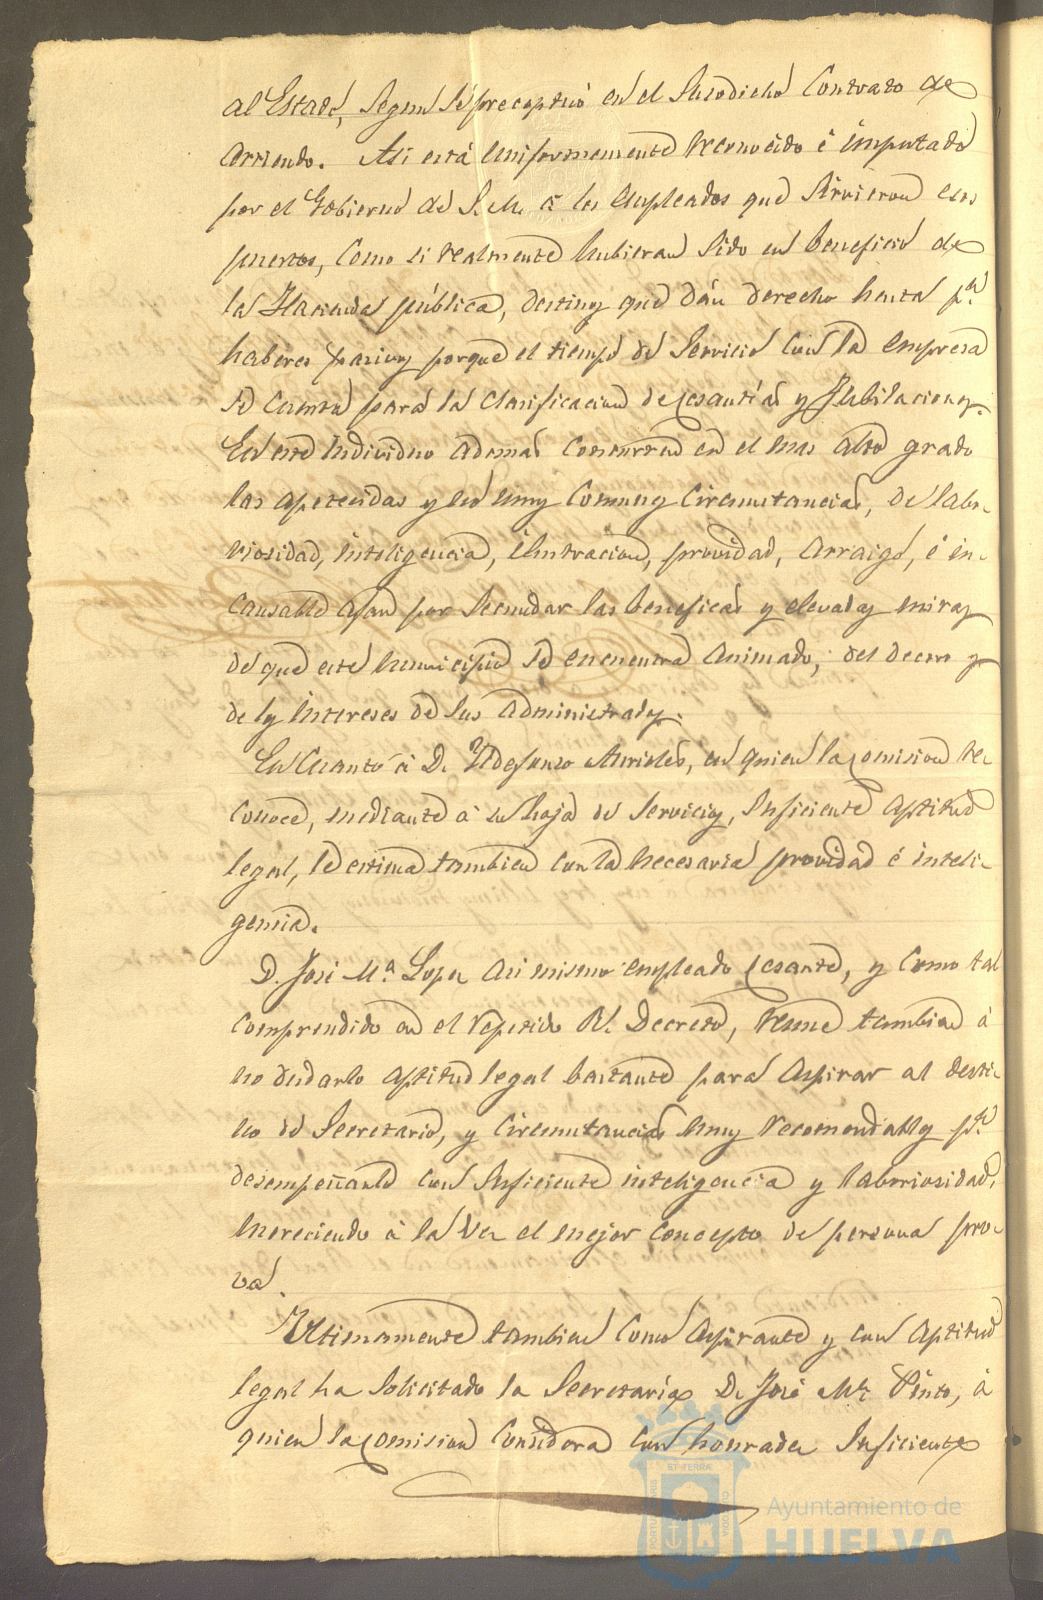 al Estado, segun se preceptuó en el susodicho Contrato de
Arriendo. Asi está uniformemente reconocido é imputado
por el Gobierno de S. M. á los empleados que sirvieron esos
puertos, como si realmente hubieran sido en beneficio de
la Hacienda pública, destinos que dán derecho hasta pª
haberes pasivos porque el tiempo de servicio con la empresa
se cuenta para la clasificacion de Cesantías y Jubilaciones.
En este individuo ademas concurren en el mas alto grado
las apetecidas y no muy comunes circunstancias, de labo-
riosidad, inteligencia, ilustracion, providad, arraigo, é in-
cansable afan por secundar las beneficas y elevadas miras
de que este municipio se encuentra animado, del decoro y
de los intereses de sus administrados.
En cuanto á D. Yldefonso, en quien la comision re-
conoce, mediante á su hoja de servicios, suficiente aptitud
legal, le estima tambien con la necesaria providad é inteli-
gencia.
D. José Mª Lopez asi mismo empleado cesante, y como tal
comprendido en el repetido Rl. Decreto, reune tambien á
no dudarlo aptitud legal bastante para aspirar al desti-
no de Secretario, y circunstancias muy recomendables pª
desempeñarlo con suficiente inteligencia y laboriosidad,
mereciendo á la vez el mejor concepto de persona pro-
va.
Ultimamente tambien como aspirante y con aptitud
legal ha solicitado la Secretaría D. José Mª Pinto, á
quien la comision considera con honradez suficiente
PORTUS MARIS
ET TERRÆ
CUSTODIA
Ayuntamiento de
HUELVA